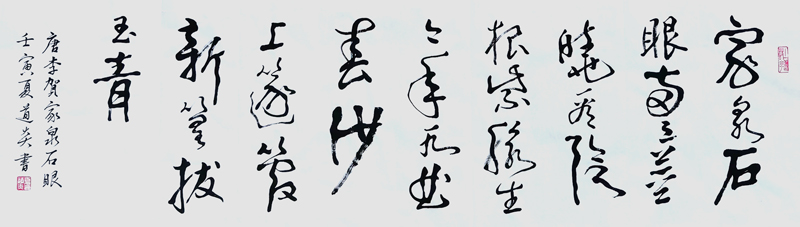 家泉石
眼兩三莖
曉看陰
根紫脈生
今年水曲
春沙
上篴管
新篁拔
玉青
唐李賀家泉石眼
壬寅夏道炎書